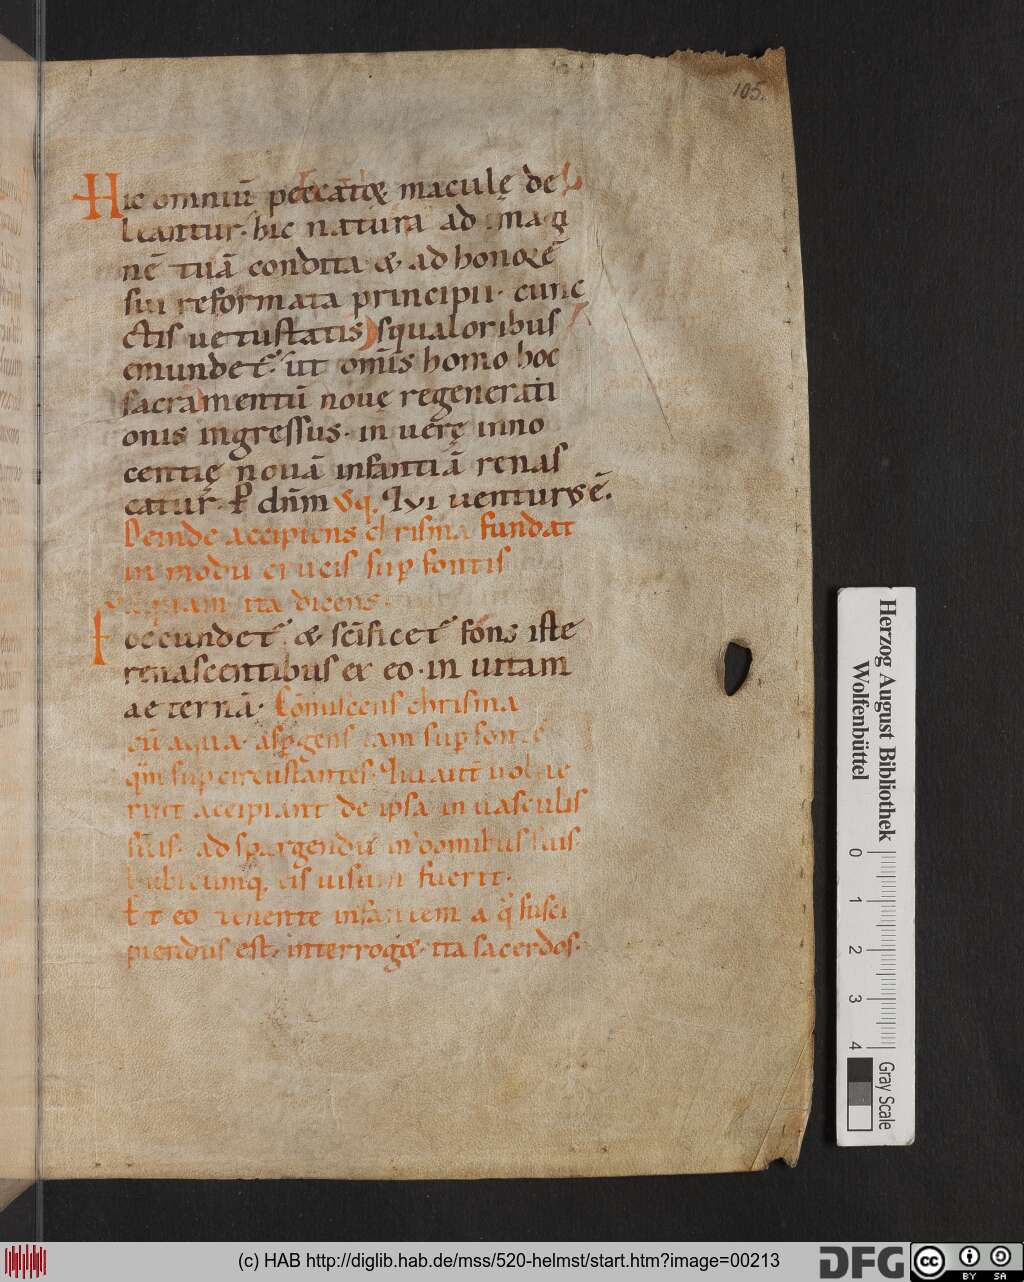 105.
Hic omniū peccatoꝝ maculę de
leantur. hic natura ad imagi
nē tuā condita & ad honorē
sui reformata principii. cunc
ctis uetustatis squaloribus
emundet᷑. ut om̄is homo hoc
sacramentū nouę regenerati
onis ingressus. in uerę inno
centię nouā infantiā renas
catur. P dn̄m Sq. Qui uenturus ē.
Deinde accipiens chrisma fundat
in modū crucis sup fontis
aquam ita dicens.
Foecundet᷑ & sc̄ificet᷑ fons iste
renascentibus ex eo. in uitam
aeternā. Cōmiscens chrisma
cū aqua. aspgens tam sup fontē
qm̄ sup circūstantes. Qui aut̄ uolue
rint accipiant de ipsa in uasculis
suis. ad spargendū in domibus suis
ubicumq, eis uisum fuerit.
Et eo tenente infantem a q̊ susci
piendus est. interroget ita sacerdos.
Herzog August Bibliothek
Wolfenbüttel
0 1 2 3 4
Gray Scale
(c) HAB http://diglib.hab.de/mss/520-helmst/start.htm?image=00213
DFG
cc
BY SA